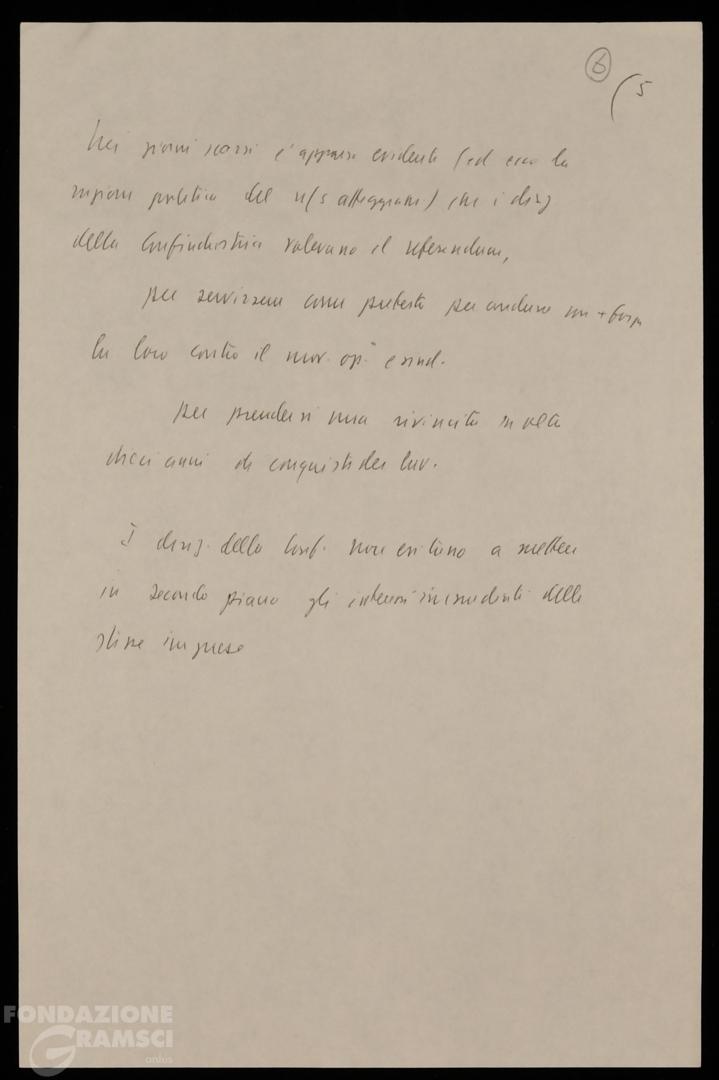 6
(5
Nei giorni scorsi è apparso evidente (ed ecco la
ragione politica del n/s atteggiam) che i dirig
della Confindustria volevano il referendum,
per servirsene come pretesto per andare con + forza
la loro contro il mov. op.° e sind.
per prendersi una rivincita su oltre
dieci anni di conquiste dei lav.
I dirig. della Conf. non esitano a mettere
in secondo piano gli interessi immediati delle
stesse imprese
FONDAZIONE
GRAMSCI
onlus